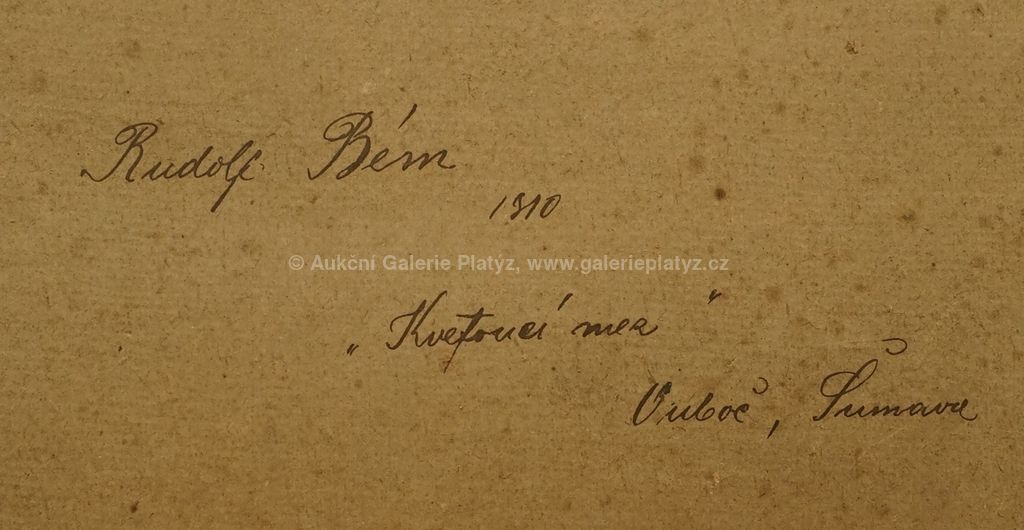 Rudolf Bém
1910
© Aukční Galerie Platýz, www.galerieplatyz.cz
„Kvetoucí mez"
Šumava